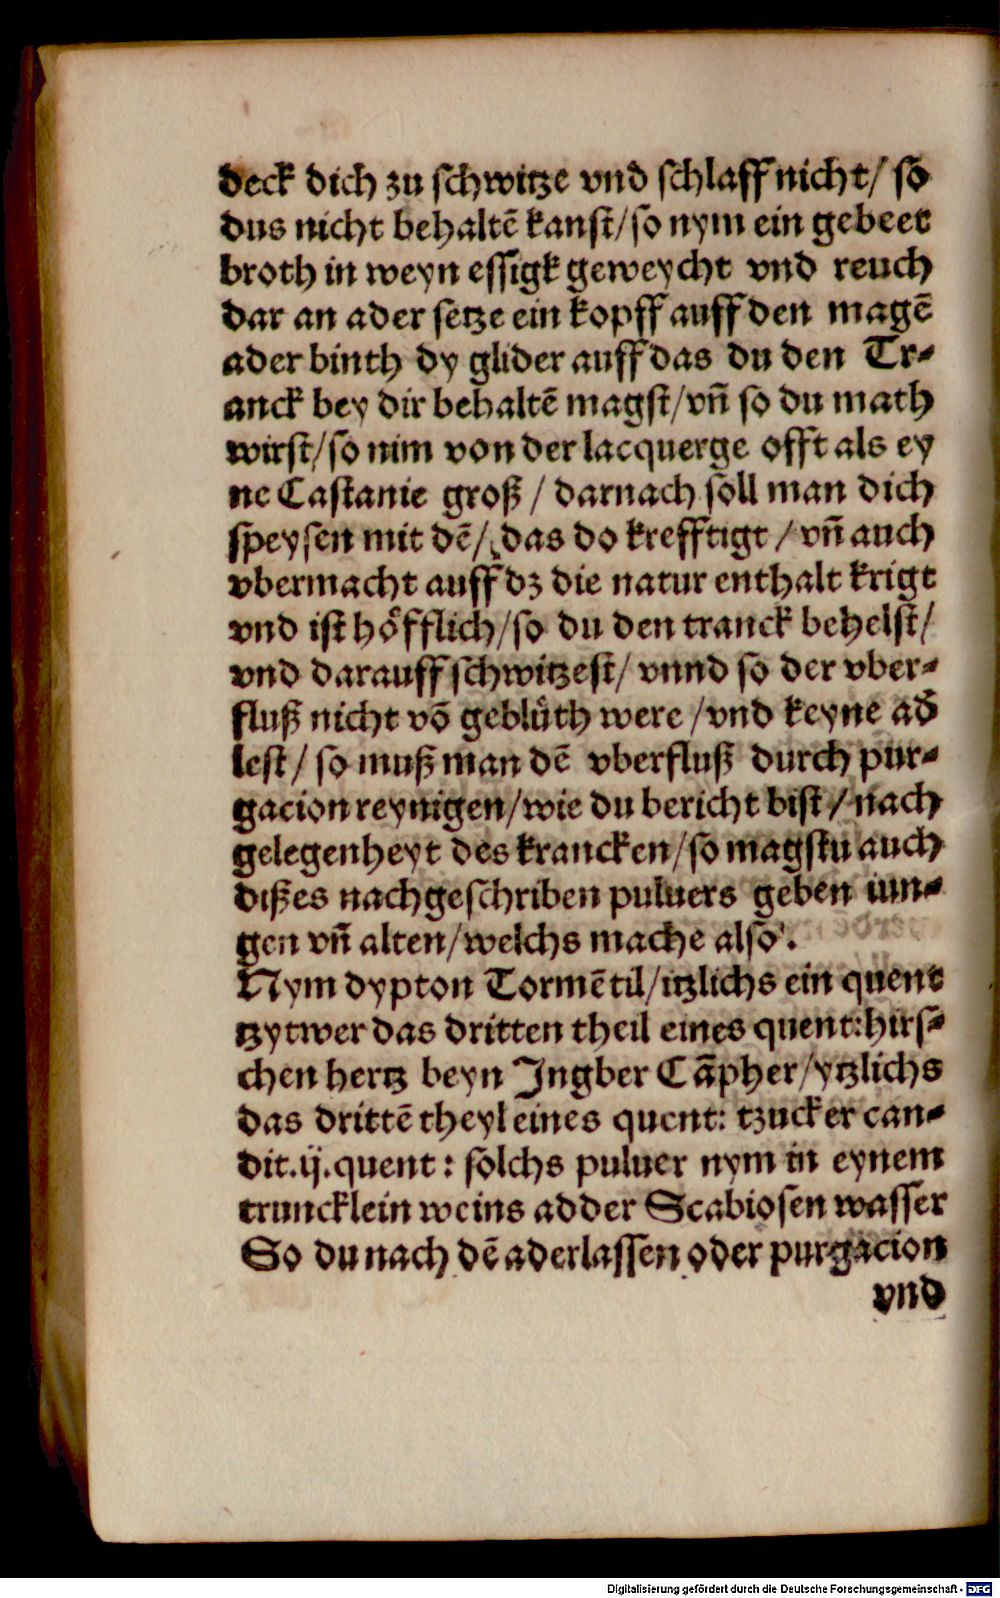 deck dich zu schwitze vnd schlaff nicht/ so
dus nicht behaltē kanst/so nym ein gebeet
broth in weyn essigk geweycht vnd reuch
dar an ader setze ein kopff auff den magē
ader binth dy glider auff das du den Tr-
anck bey dir behaltē magst/vn̄ so du math
wirst/so nim von der lacquerge offt als ey
ne Castanie groß / darnach soll man dich
speysen mit dē/ das do krefftigt / vn̄ auch
vbermacht auff dz die natur enthalt krigt
vnd ist hoͤfflich/so du den tranck behelst/
vnd darauff schwitzest/ vnnd so der vber-
fluß nicht vō gebluͤth were /vnd keyne ad̄
lest/ so muß man dē vberfluß durch pur-
gacion reynigen/wie du bericht bist/nach
gelegenheyt des krancken/so magstu auch
dißes nachgeschriben puluers geben iun-
gen vn̄ alten/welchs mache also.
Nym dypton Tormētil/itzlichs ein quent
tzytwer das dritten theil eines quent:hirs-
chen hertz beyn Ingber Cāpher/ytzlichs
das drittē theyl eines quent: tzucker can-
dit.ij.quent: solchs puluer nym in eynem
truncklein weins adder Scabiosen wasser
So du nach dē aderlassen oder purgacion
vnd
Digitalisierung gefördert durch die Deutsche Forschungsgemeinschaft - DFG